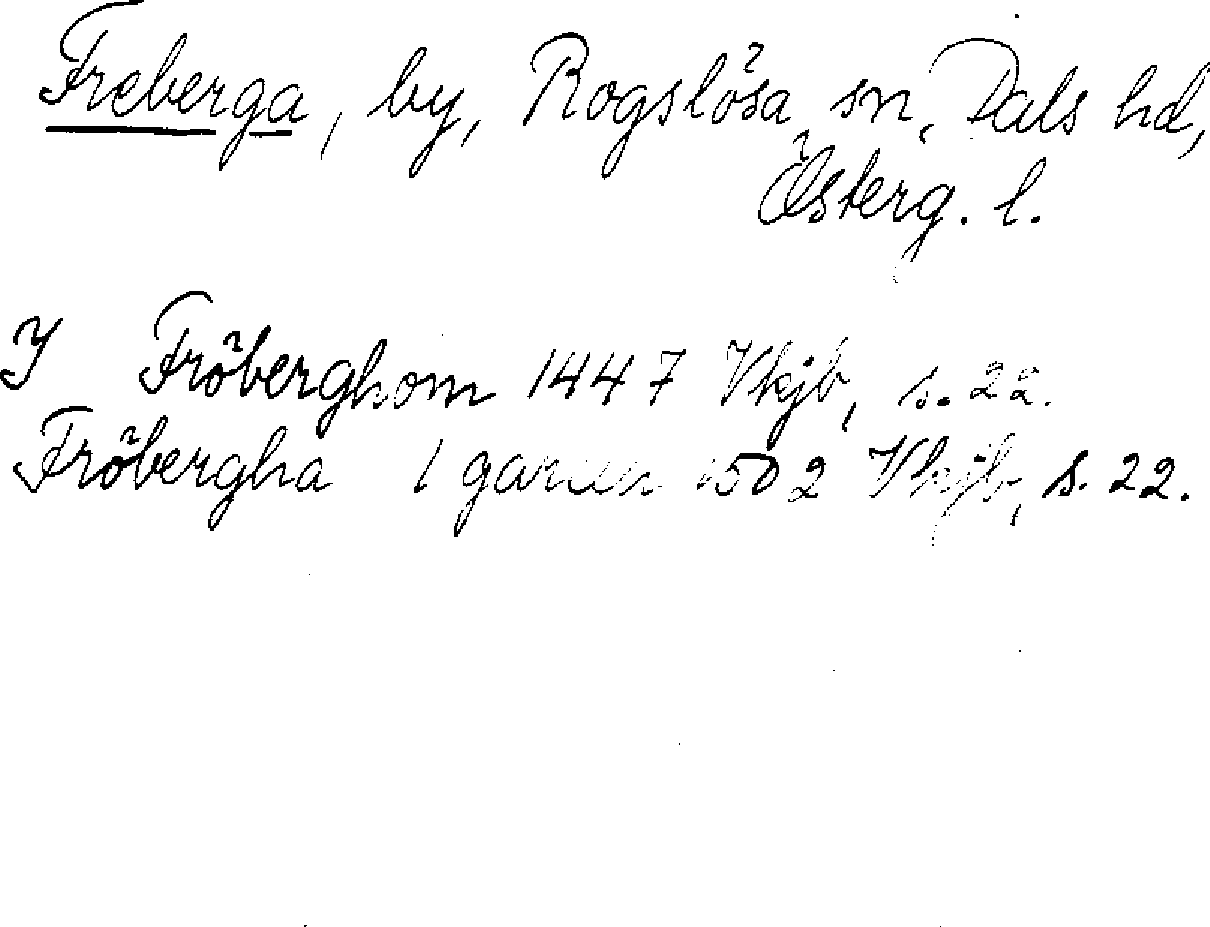 Freberga, by, Rogslösa sn, Dals hd,
Österg. l.
I Fröberghom 1447 Vkjb, s. 22.
Fröbergha 1 garin 1502 Vkjb, s. 22.